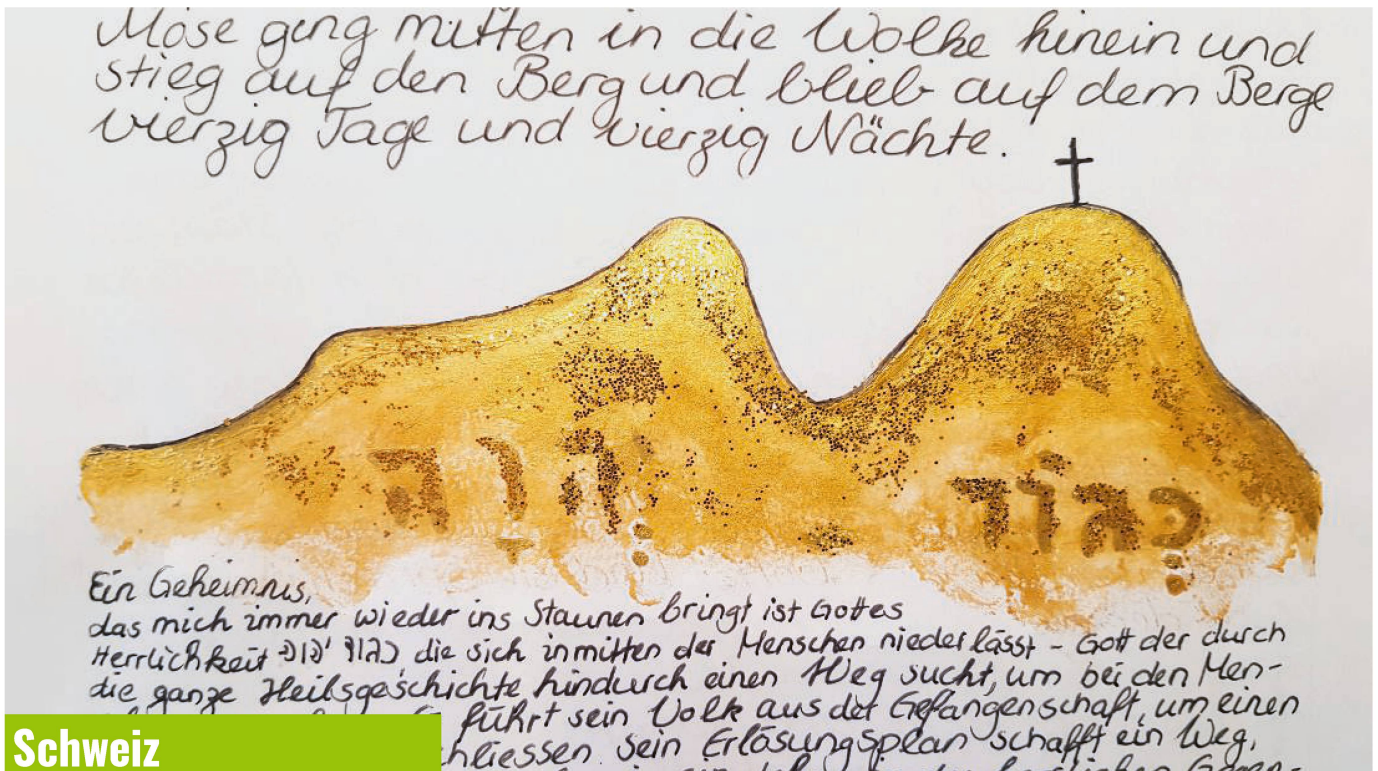 Mose ging mitten in die Wolke hinein und
stieg auf den Berg und blieb auf dem Berge
vierzig Tage und vierzig Nächte.
כְּבוֹד יְהוָה
Ein Geheimnis,
das mich immer wieder ins Staunen bringt ist Gottes
Herrlichkeit כבוד יהוה die sich inmitten der Menschen niederlässt - Gott der durch
die ganze Heilsgeschichte hindurch einen Weg sucht, um bei den Men-
führt sein Volk aus der Gefangenschaft, um einen
hliessen. Sein Erlösungsplan schafft ein Weg,
Schweiz